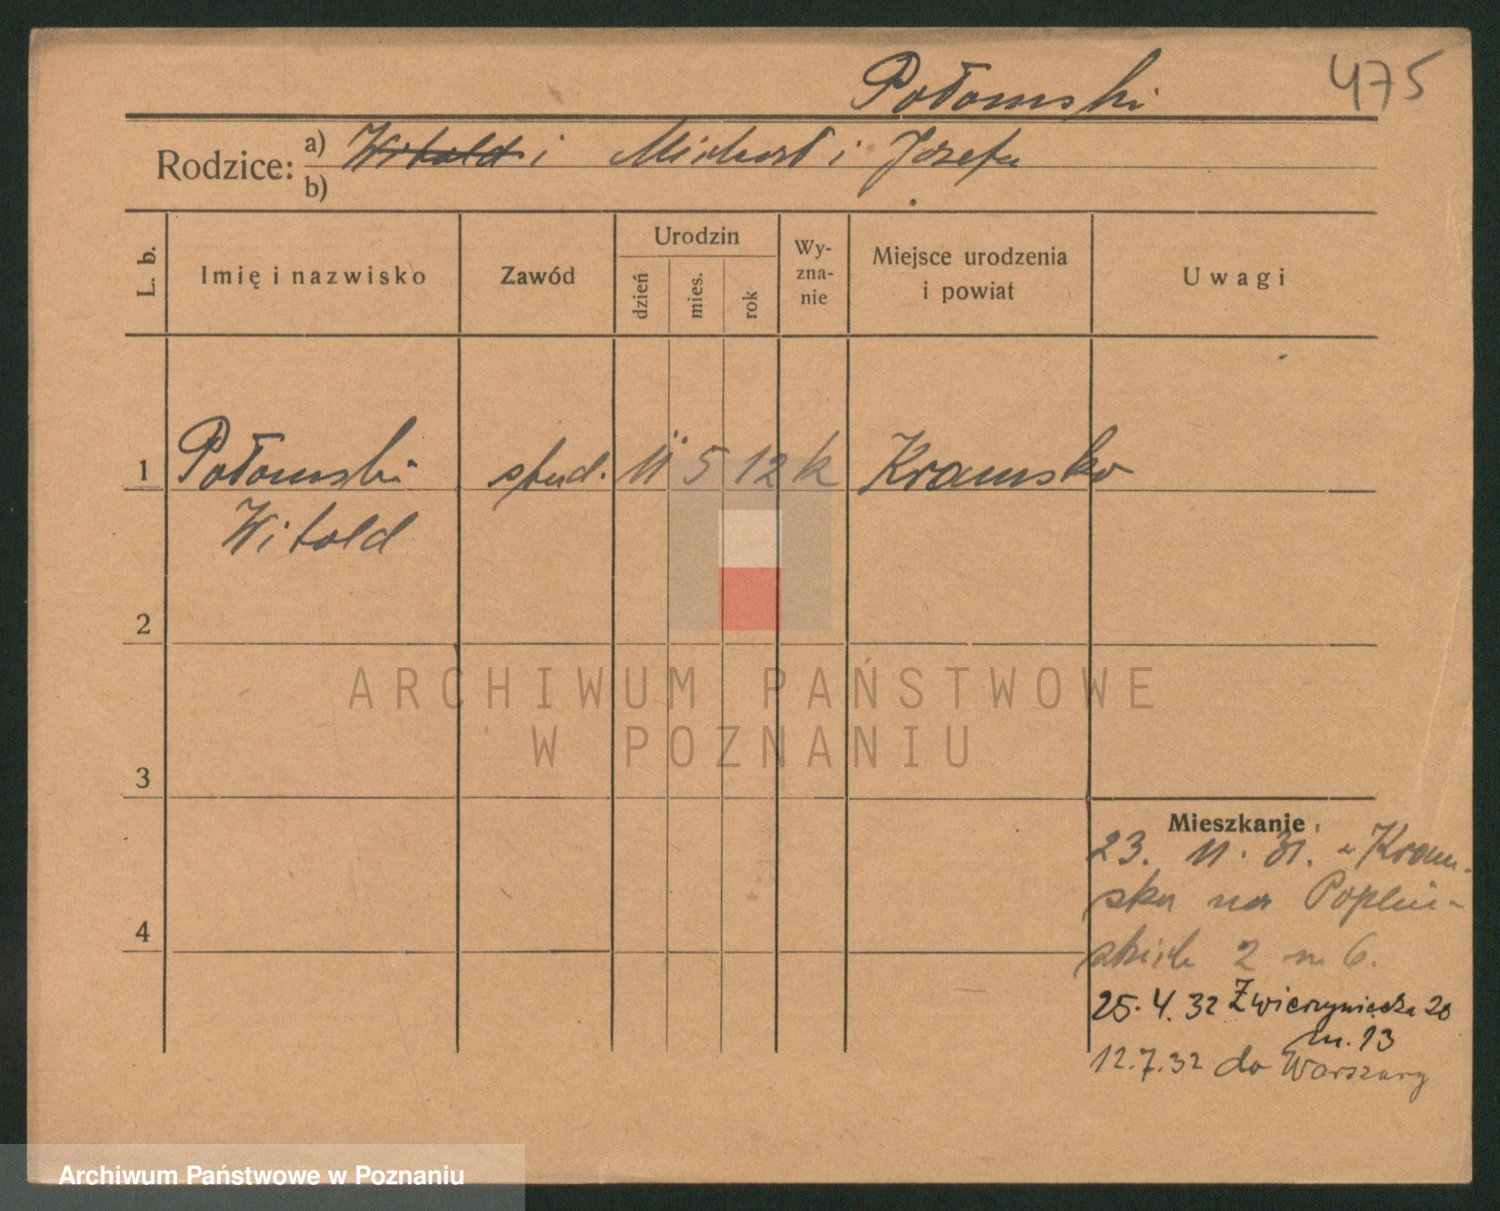 Połomski 475
Rodzice: a) Witold i Michał i Józefa
b)
L. b. Imię i nazwisko Zawód Urodzin dzień mies. rok Wy-zna-nie Miejsce urodzenia i powiat Uwagi
1 Połomski stud. 11 5 12 k Kramsko
Witold
2
ARCHIWUM PAŃSTWOWE
W POZNANIU
3
Mieszkanie
23. 11. 31. z Kram-
ska na Popliń-
skich 2 m 6.
4
25.4.32 Zwierzyniecka 20
m. 13
12.7.32 do Warszawy
Archiwum Państwowe w Poznaniu